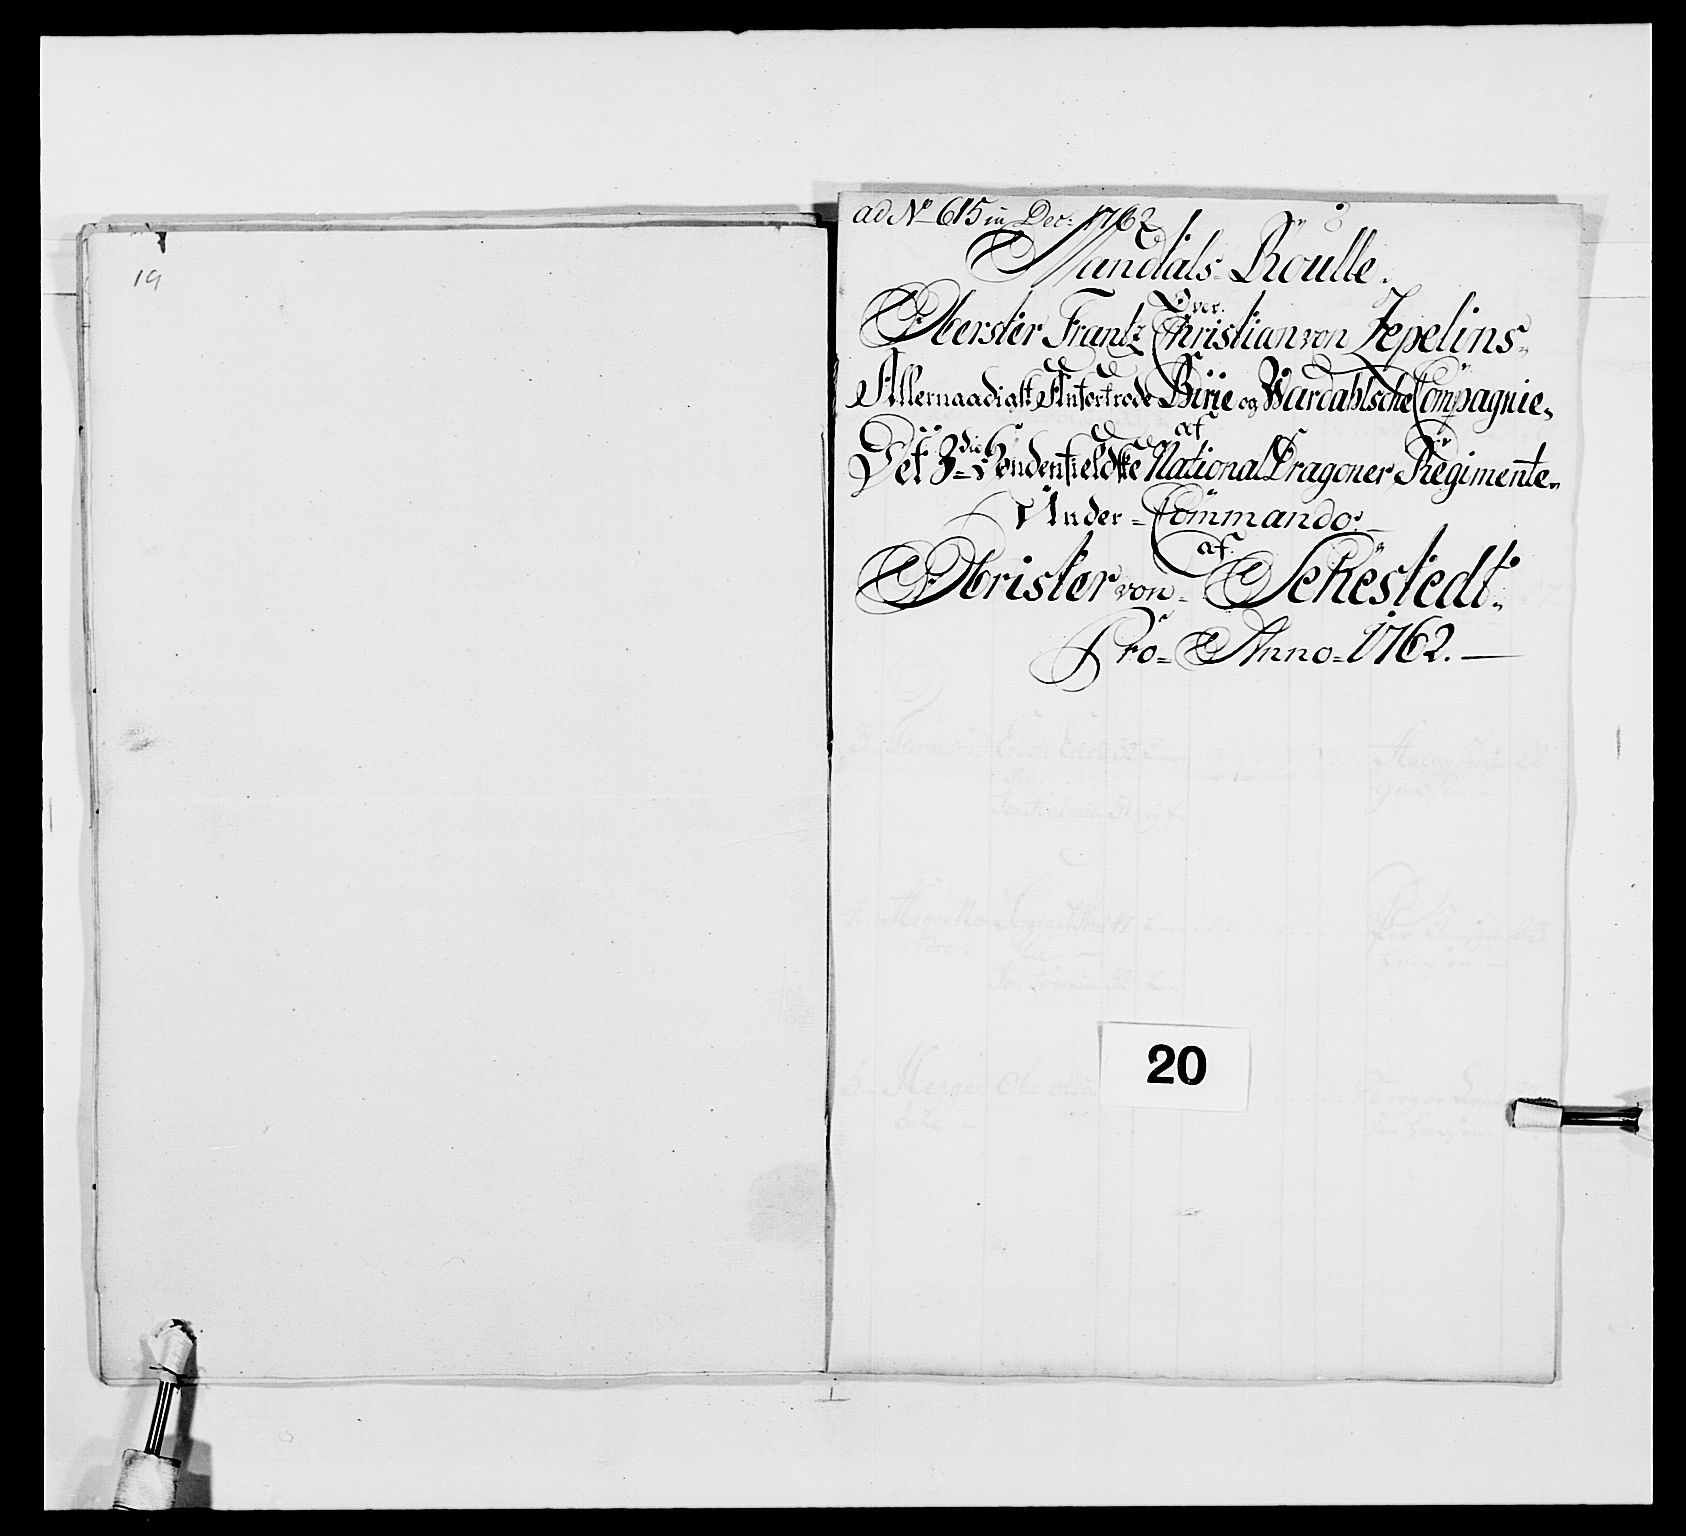 19
ad No 615 in Dec: 1762
Mandals-Roulle.
Over.
Oberster Frantz Christian von Zepelins
Allernaadigst Anfortrode Birie og Wardahlsche Compagnie,
af
Det 3die Söndenfieldske National Dragoner Regimente
Under-Commando
af
Obrister von Sehestedt.
Pro-Anno-1762.
20